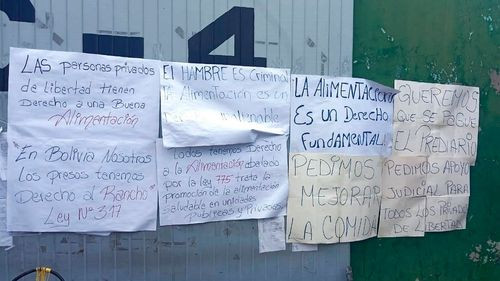 LAS personas privados
de libertad tienen
Derecho a una Buena
Alimentación
"En Bolivia Nosotros
Los presos tenemos
Derecho al Rancho"
Ley N° 317
El HAMBRE ES Criminal
LA Alimentación es un
Todos tenemos Derecho
a la Alimentación abalado
por la ley 775 trata la
promoción de la alimentación
saludable en unidades
Publicas y Privadas
LA Alimentación
Es un Derecho
Fundamental
PEDIMOS
MEJORAR
LA COMIDA
QUEREMOS
QUE SE PAGUE
EL PREDIARIO
PEDIMOS APOYO
JUDICIAL PARA
TODOS LOS PRIVADO
DE LIBERTAD